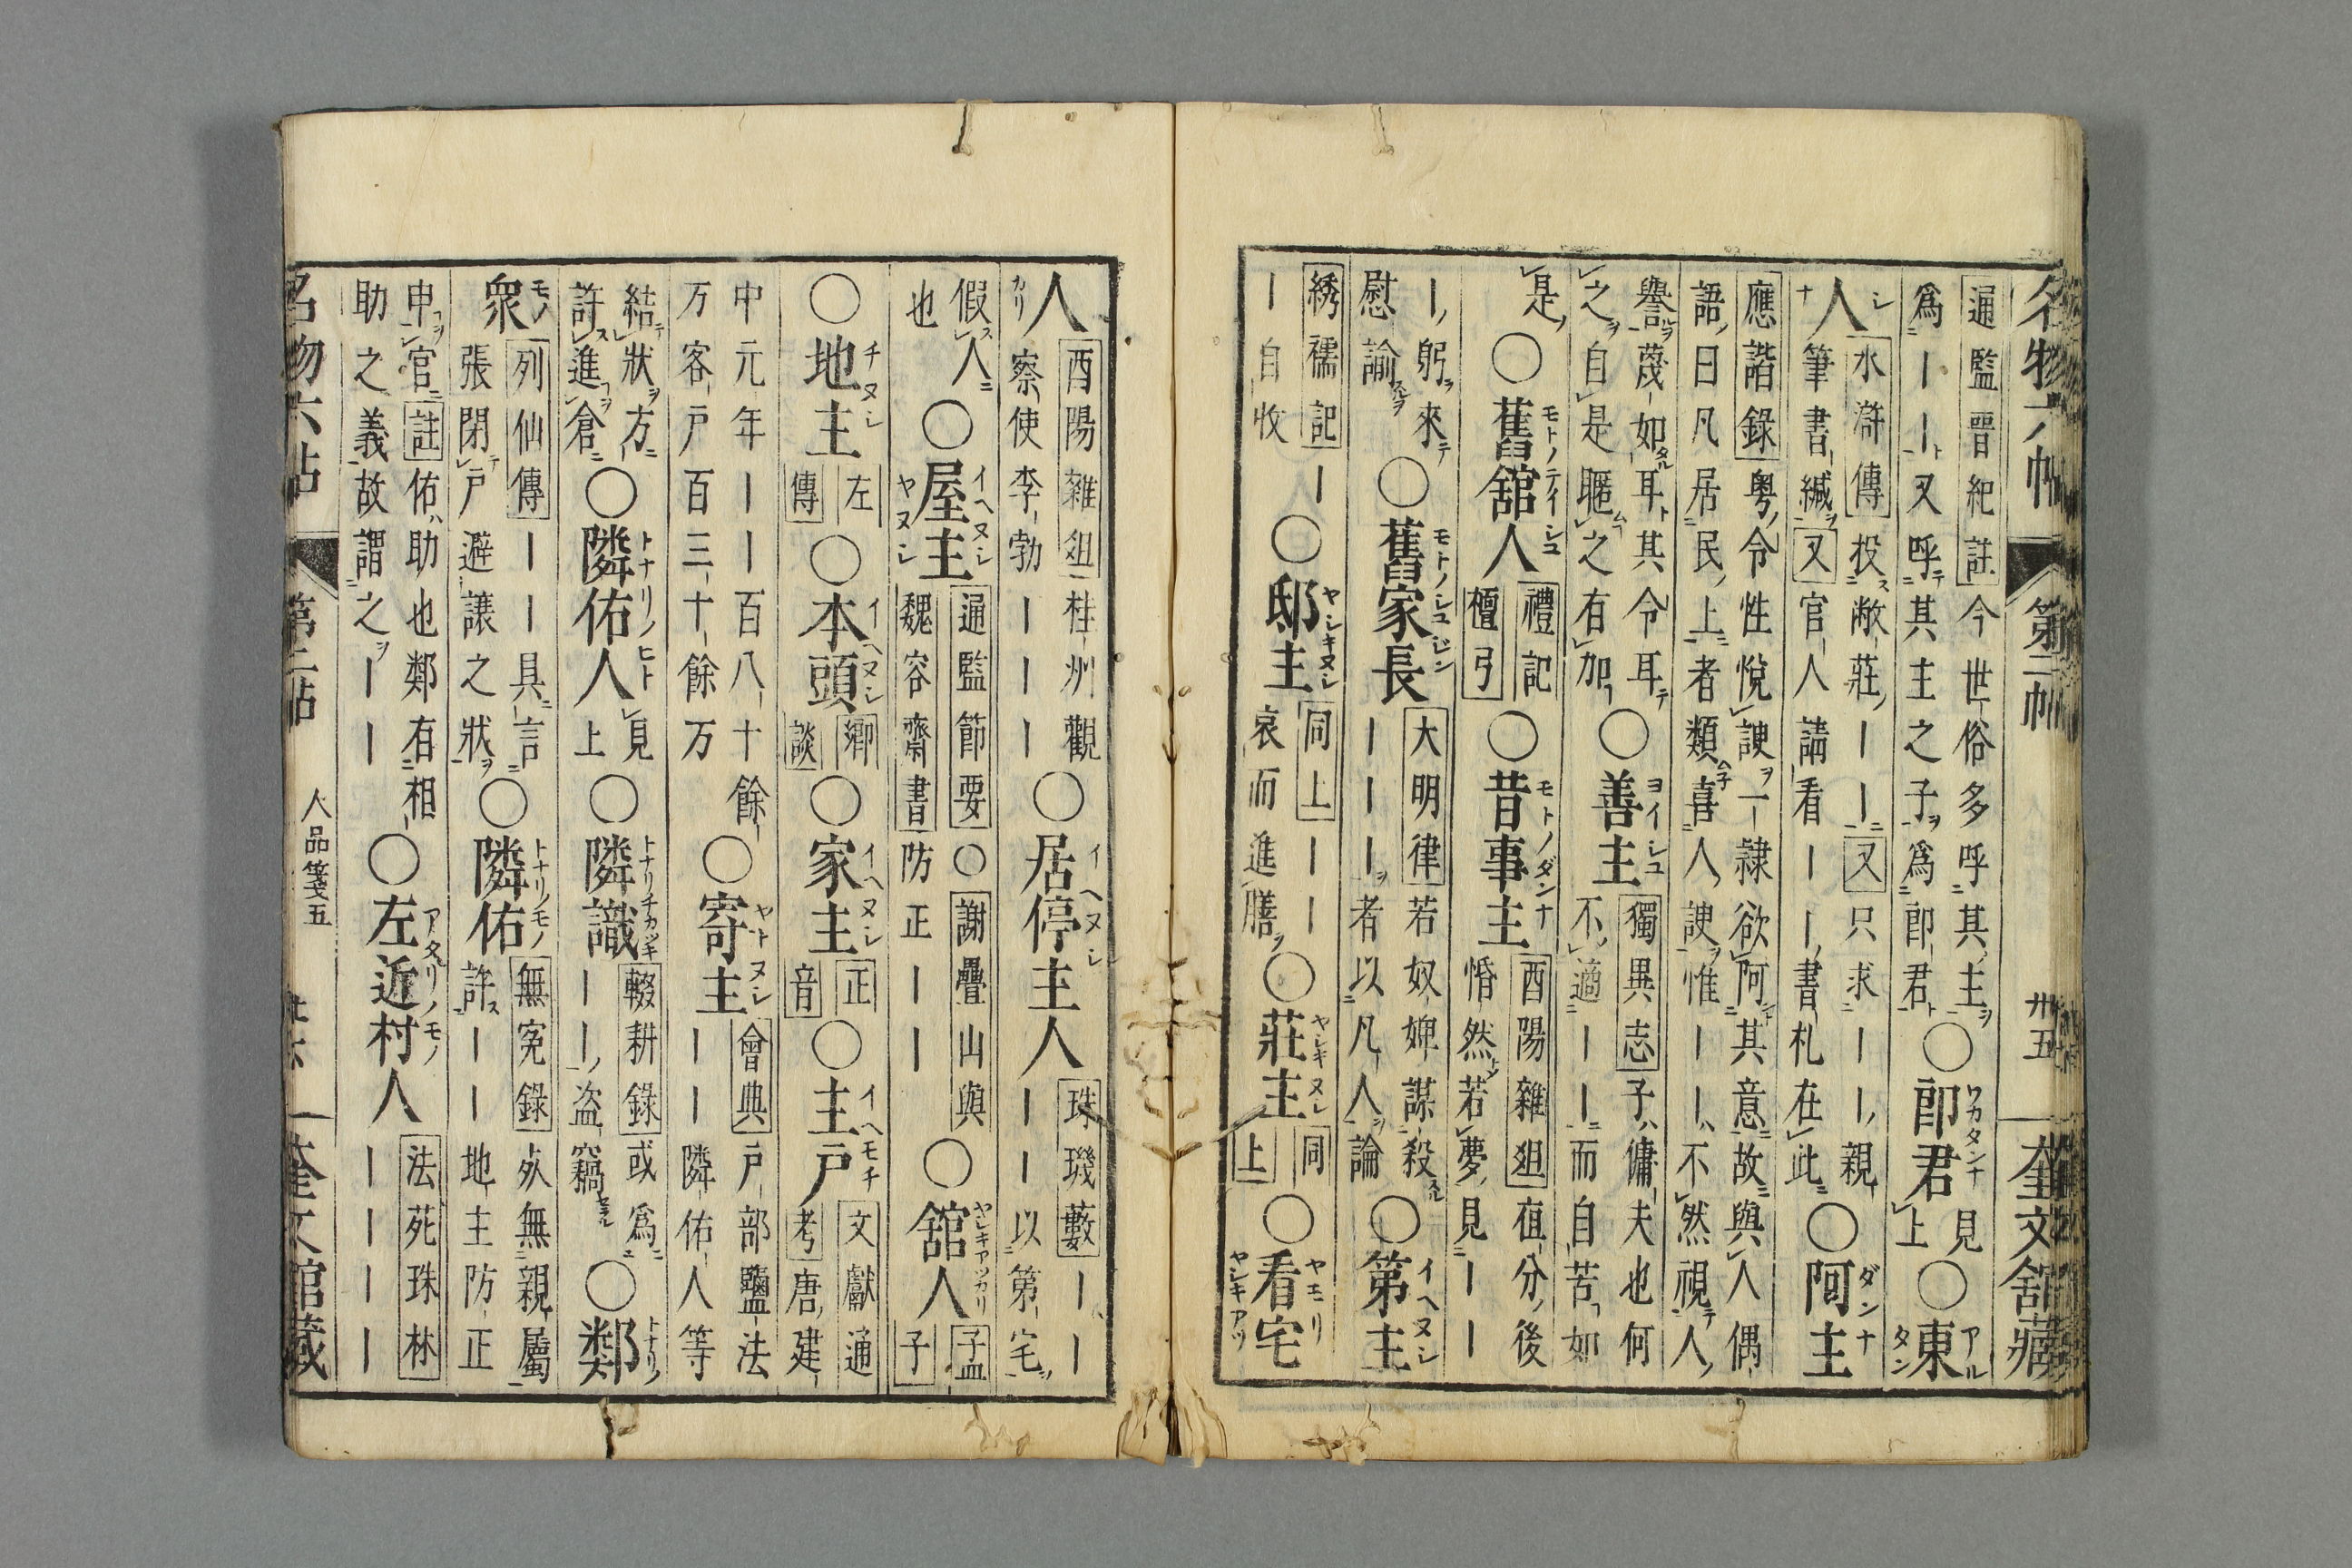 名物六帖 第二帖 卅五 奎文舘藏
通監晋紀註今世俗多呼其主
爲｜｜又呼其主之子爲郎君○郎君見上○東
人水滸傳投敝莊｜｜又只求｜｜親
筆書緘又官人請看｜｜書札在此○阿主
應諧錄粤令性悅諛一隸欲阿其意故與人偶
語曰凡居民上者類喜人諛惟｜｜不然視人
譽蔑如耳其令耳○善主獨異志子傭夫也何
之自是暱之有加 不適｜｜而自苦如
是○舊舘人禮記檀弓○昔事主酉陽雜俎值分後惛然若夢見｜｜
｜躬來慰諭○舊家長大明律若奴婢謀殺｜｜｜者以凡人論○第主
綉襦記｜｜自收○邸主同上｜｜哀而進膳○莊主同上○看宅
人酉陽雜俎桂州觀察使李勃｜｜｜○居停主人珠璣藪｜｜｜｜以第宅
假人也○屋主通監節要○謝疊山與魏容齋書防正｜｜○舘人孟子
○地主左傳○本頭鄉談○家主正音○主戶文獻通考唐建
中元年｜｜百八十餘万客戶百三十餘万○寄主會典戶部鹽法｜｜隣佑人等
結狀方許進倉○隣佑人見上○隣識輟耕錄或爲｜｜盗竊○鄰
衆列仙傳｜｜具言張閉戶避讓之狀○隣佑無寃錄如無親屬許｜｜地主防正
申官註佑助也鄰有相助之義故謂之｜｜○左近村人法苑珠林｜｜｜｜
名物六帖 第二帖 人品箋五 奎文舘藏